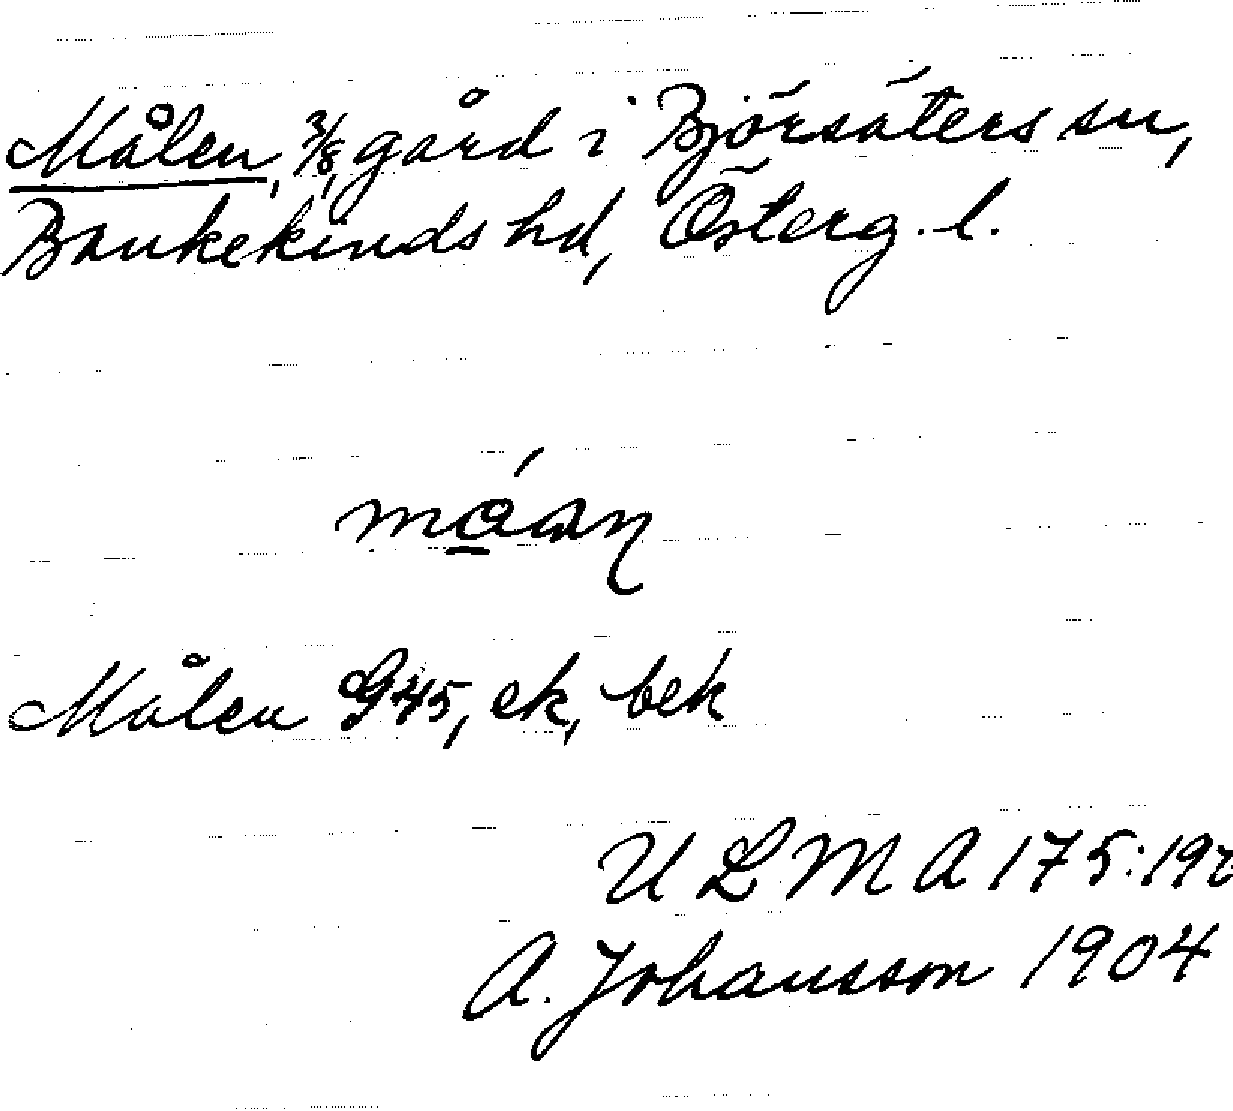 Målen, 3/8 gård i Björsäters sn,
Bankekinds hd, Österg. l.
Målen G45, ek, bek
ULMA 175:19
A. Johansson 1904